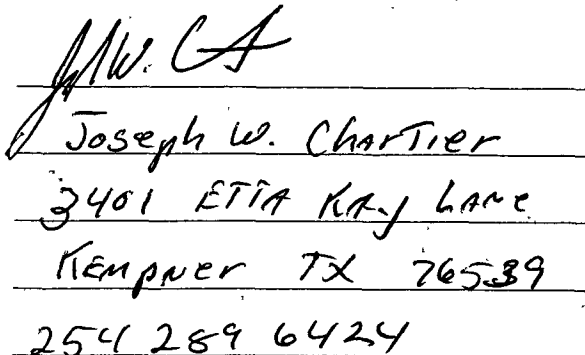 Joseph W. Chartier
3401 ETTA KAY LANE
KEMPNER TX 76539
254 289 6424